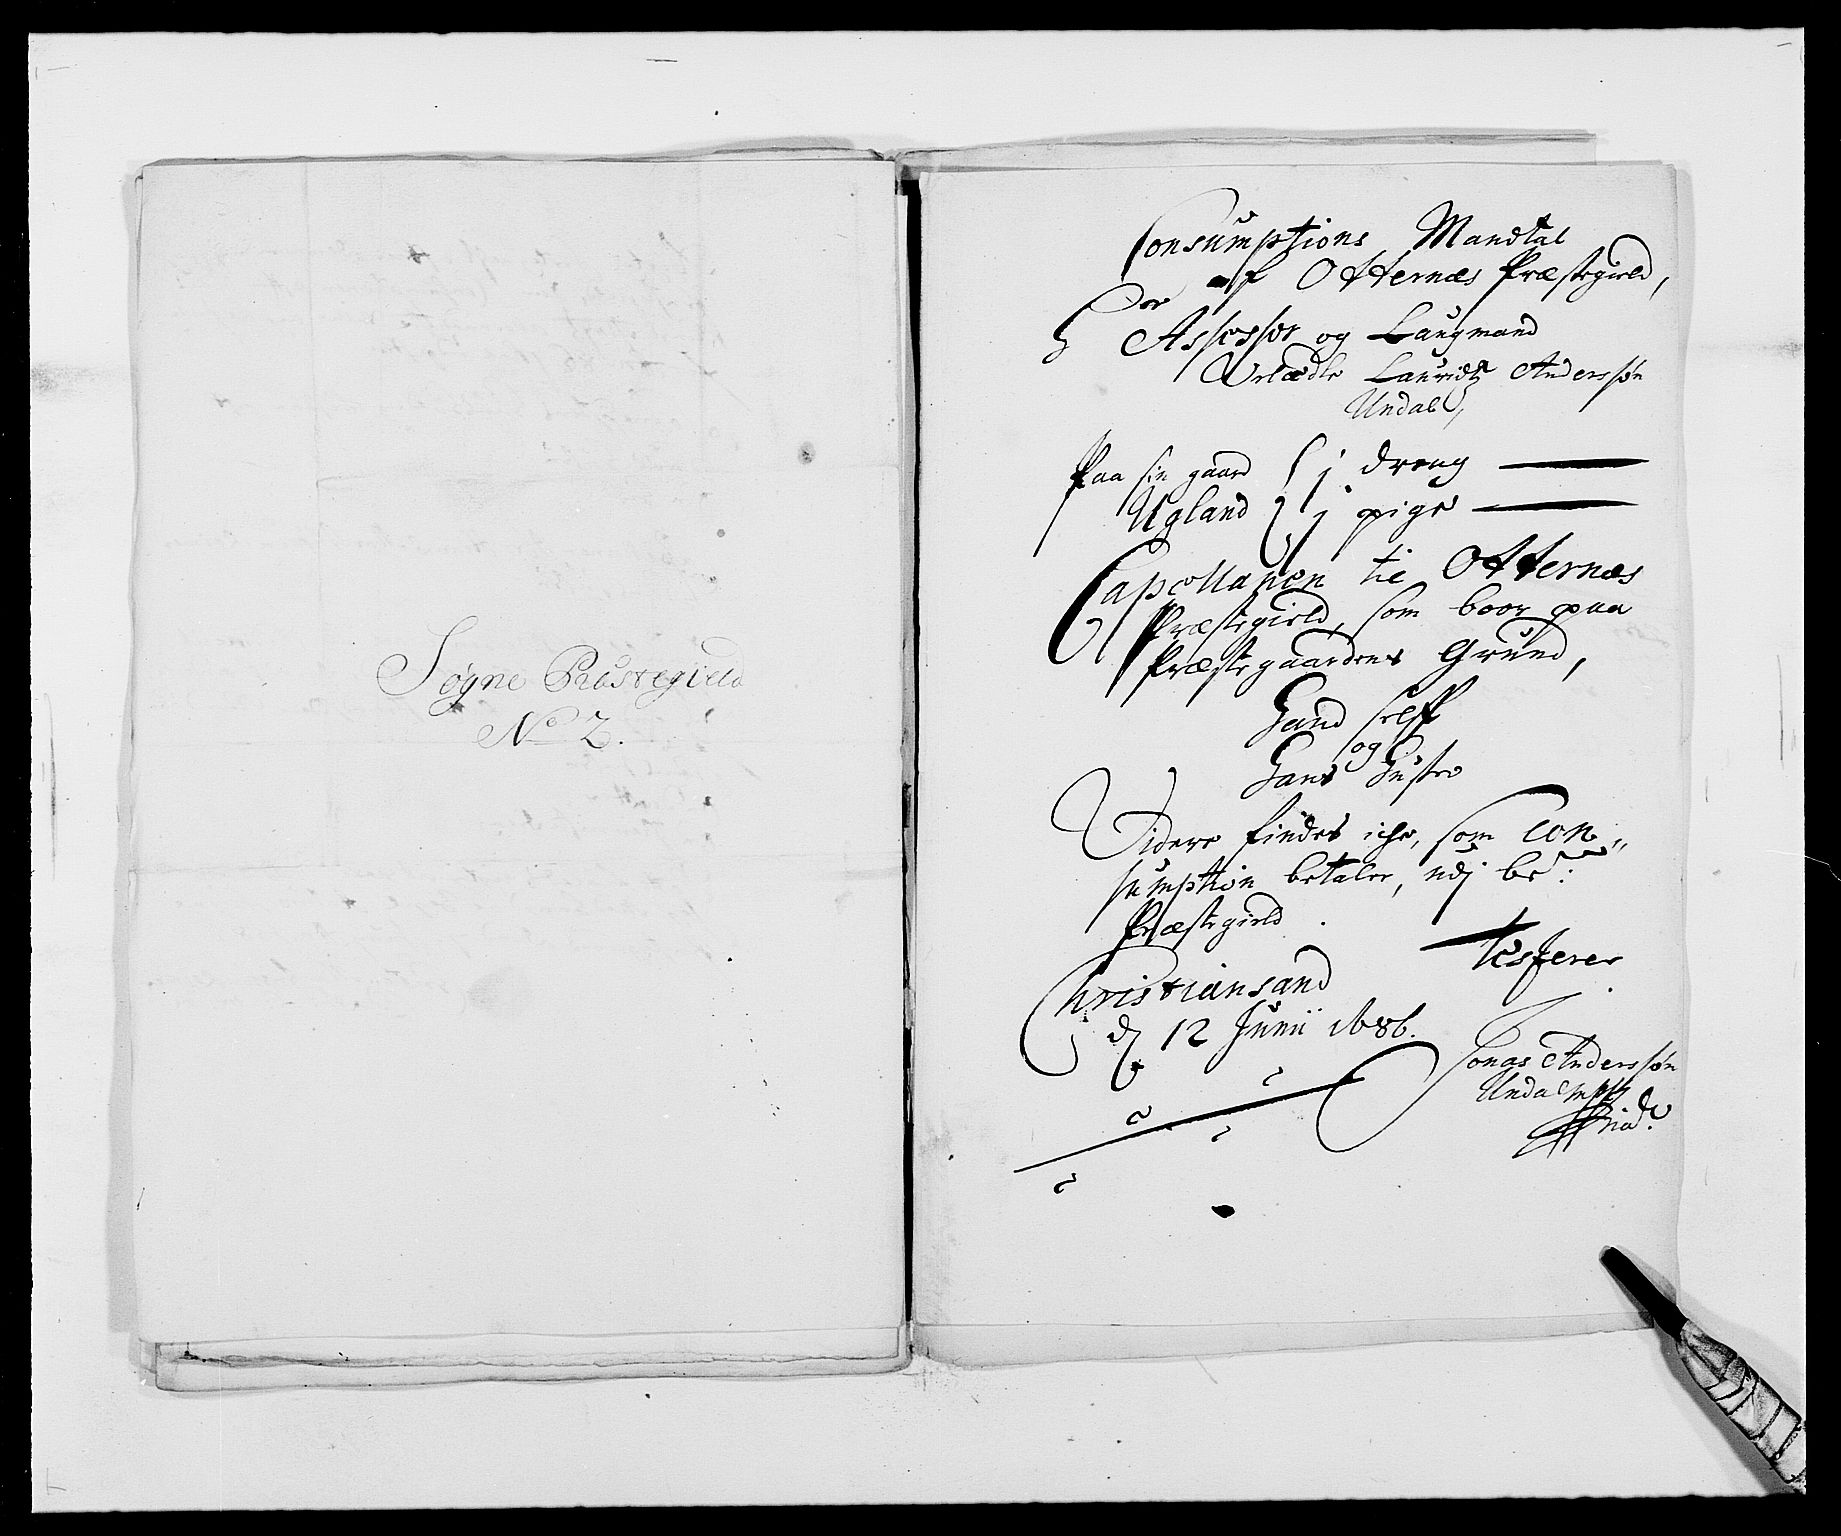 Søgne Præstegield
No 2.
Consumptions Mandtal
af Otternæs Præstegield,
Hr
Assessor og Laugmand
Velædle Lauridtz Anderssøn
Undal,
Paa sin gaard { j dreng
Ugland { j pige
Capellanen til Otternæs
Præstegield, som boer paa
Præstegaardens Grund,
Hand self
og
Hans Hustro
Videre findes iche, som Con„
sumption betaler, udj be:te
Præstegield.
Testerer
Christiansand
d 12 Junii 1686.
Jonas Anderssøn
Undal mpp